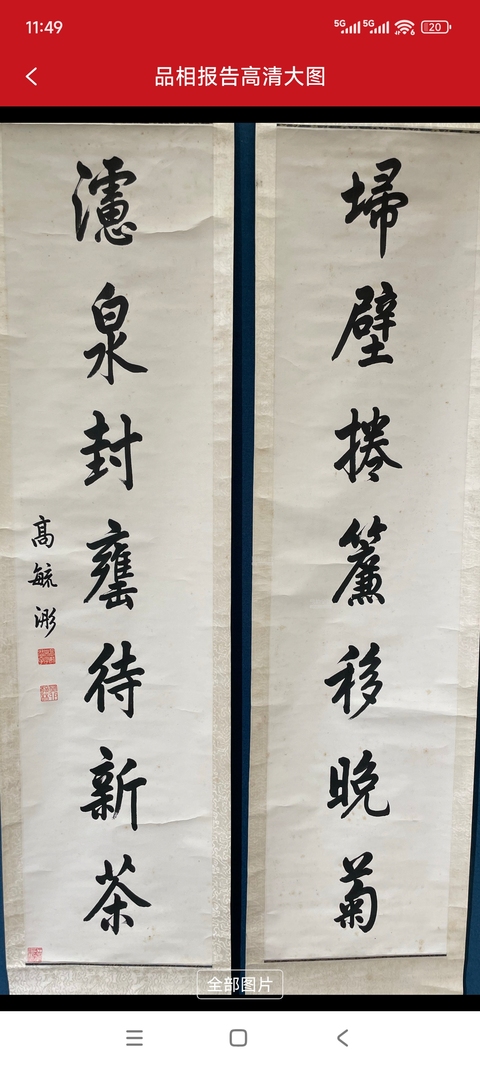 11:49
5G 5G 6 20
品相报告高清大图
埽壁捲簾移晚菊
濾泉封甕待新茶
高毓浵
全部图片